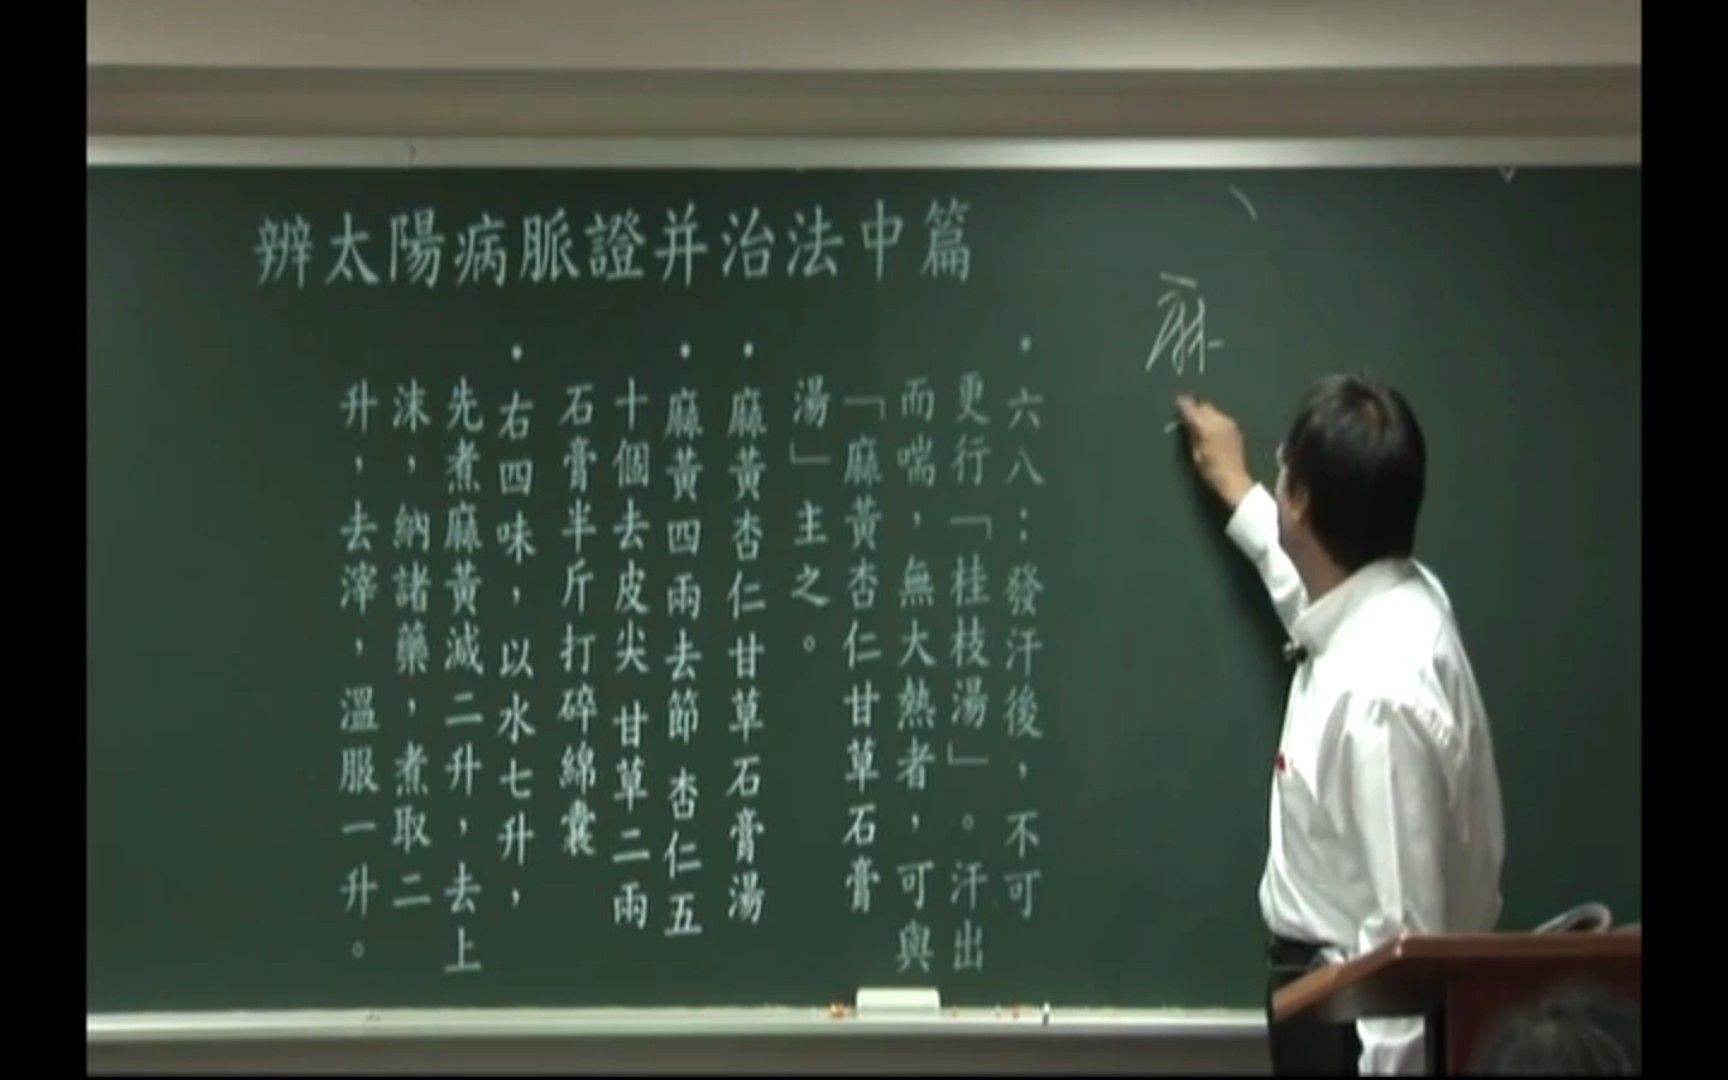 辨太陽病脈證并治法中篇
•六八：發汗後，不可
更行「桂枝湯」。汗出
而喘，無大熱者，可與
「麻黃杏仁甘草石膏
湯」主之。
•麻黃杏仁甘草石膏湯
•麻黃四兩去節 杏仁五
十個去皮尖 甘草二兩
石膏半斤打碎綿囊
•右四味，以水七升，
先煮麻黃減二升，去上
沫，納諸藥，煮取二
升，去滓，溫服一升。
麻